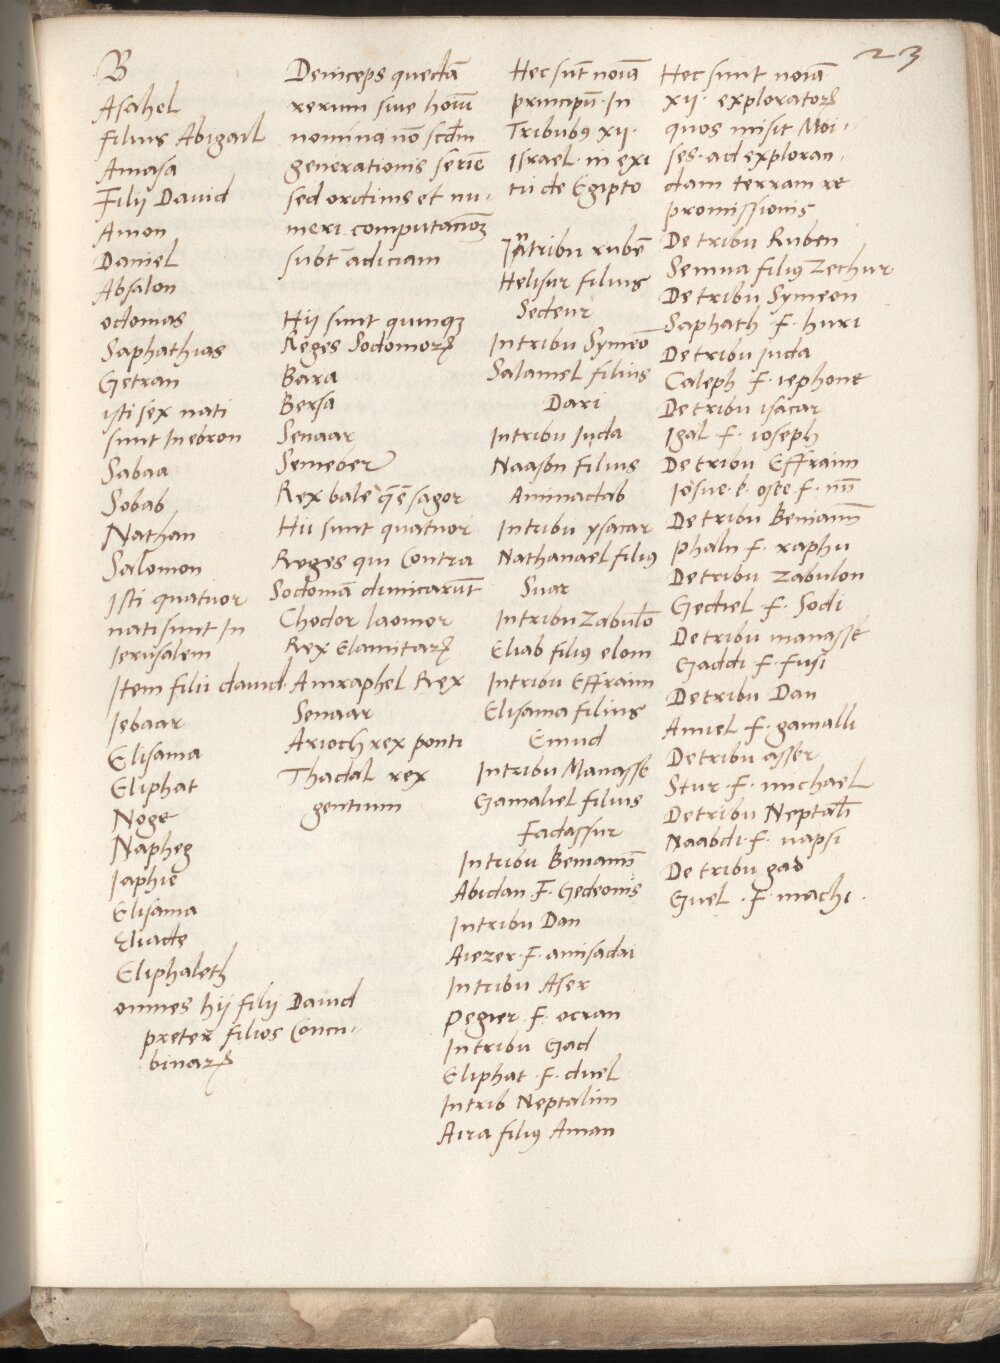 23
B
Asahel
filius Abigail
Amasa
Filij David
Amon
Daniel
Absalon
odomas
Saphathias
Getran
isti sex nati
sunt Inebron
Sabaa
Sobab
Nathan
Salomon
Isti quatuor
nati sunt In
Ierusalem
Item filii david
Iebaar
Elisama
Eliphat
Noge
Napheg
Iaphie
Elisama
Eliade
Eliphaleth
omnes hij filij David
preter filios Concu
binarꝝ
Deinceps quedā
rerum sive hoīm
nomina nō scdm̄
generationis seriē
sed ordinis et nu
meri computacionꝫ
subt̄ adiciam
Hij sunt quinqꝫ
Reges Sodomorꝝ
Bara
Bersa
Senaar
Semeber
Rex bale q̄ ē sagor
Hii sunt quatuor
Reges qui Contra
Sodomā dimicarūt
Chodor laomor
Rex Elamitarꝝ
Amraphel Rex
Senaar
Arioch rex ponti
Thadal rex
gentium
Hec sūt noīa
principū In
Tribubꝰ xij.
Israel in exi
tu de Egipto
In tribu rubē
Helisur filius
Sedeur
In tribu Symeō
Salamel filius
Dari
In tribu Iuda
Naason filius
Aminadab
In tribu ysacar
Nathanael filiꝰ
Suar
In tribu Zabulō
Eliab filiꝰ elom
In tribu Effraim
Elisama filius
Emud
In tribu Manasse
Gamaliel filius
Fadassur
In tribu Beniamī
Abidan F. Gedeonis
In tribu Dan
Aiezer F. amisadai
In tribu Aser
Pegier F. ocran
In tribu Gad
Eliphat F. duel
In trib Neptalim
Aira filiꝰ Aman
Hec sunt noīa
xij. exploratorꝝ
quos misit Moi
ses ad exploran
dam terram re
promissionis
De tribu Ruben
Semua filiꝰ Zechur
De tribu Symeon
Saphath F. huri
De tribu Iuda
Caleph F. iephone
De tribu isacar
Igal F. ioseph
De tribu Effraim
Iosue oste f. nū
De tribu Beniamī
Phalti F. raphu
De tribu Zabulon
Gediel F. Sodi
De tribu manasse
Gaddi F. Fusi
De tribu Dan
Amiel F. gamalli
De tribu asser
Stur F. michael
De tribu Neptalī
Naabdi F. vapsi
De tribu gad
Guel F. machi.